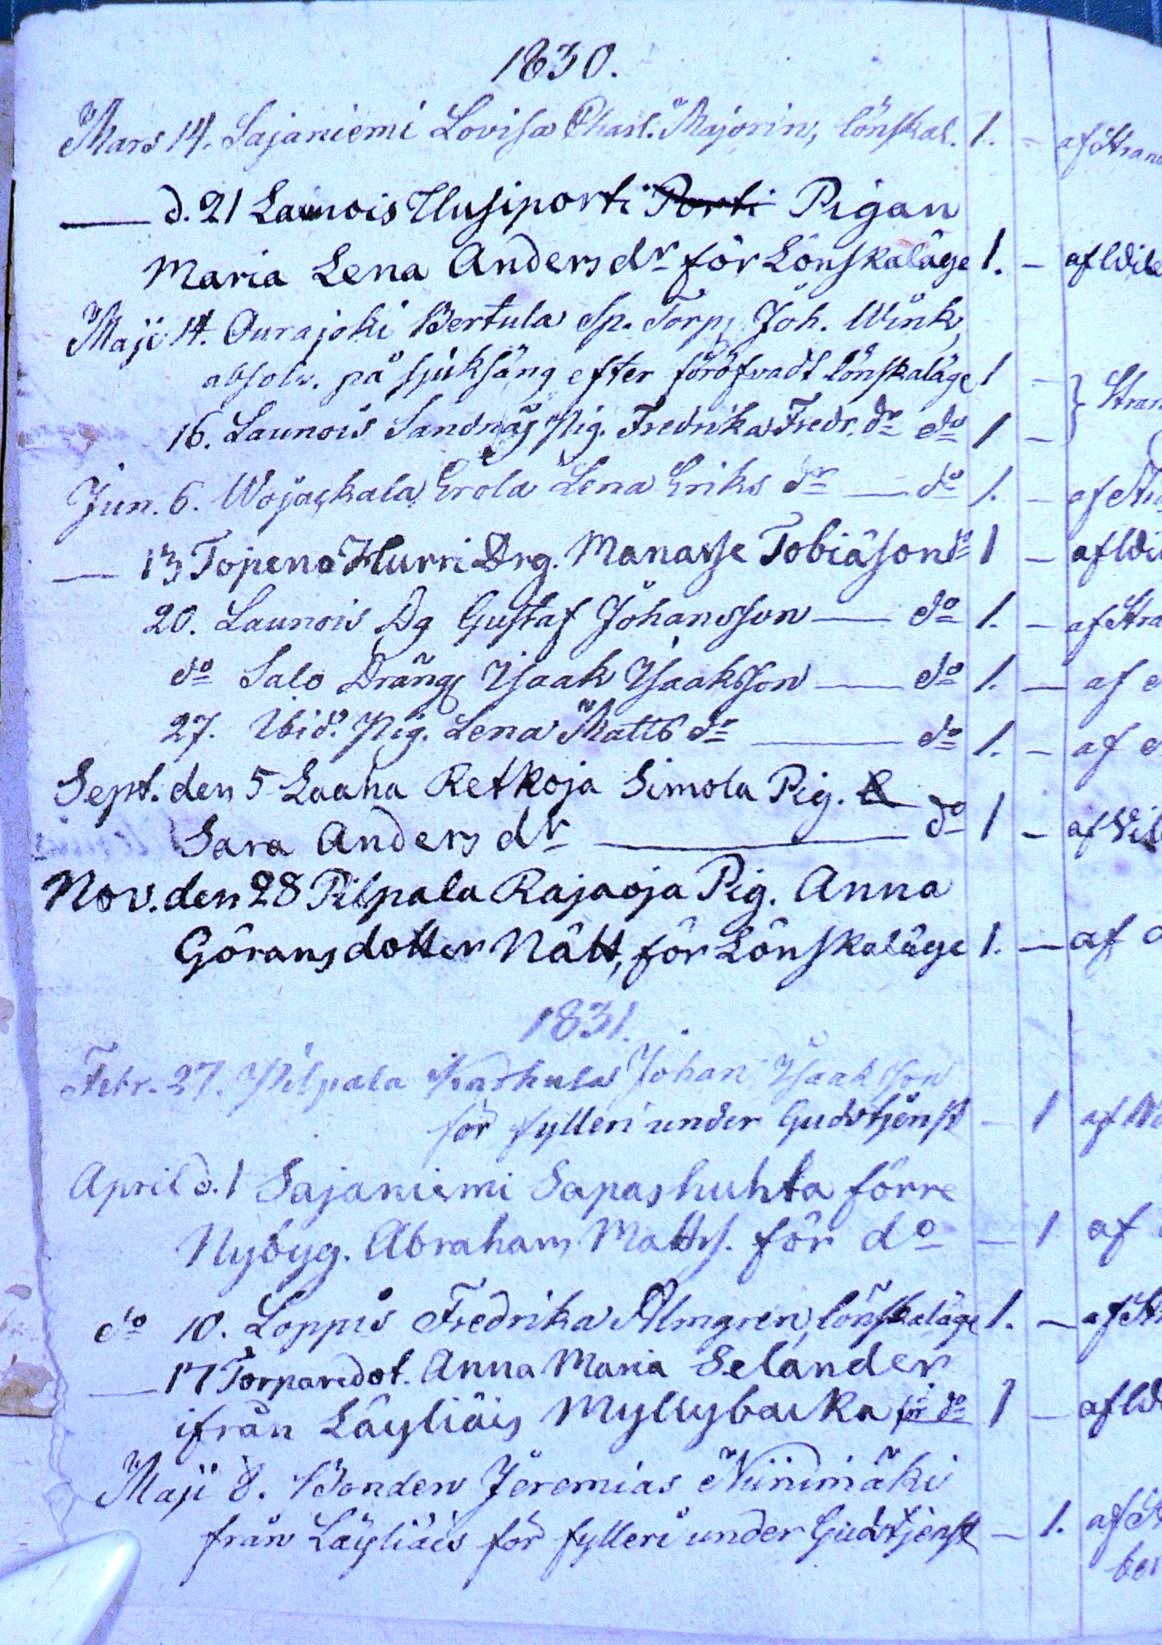 1830.
Mars 14. Sajaniemi Lovisa Charl. Majorin, lönskal. 1. - af Stran
d. 21 Launois Uusiporti Porti Pigan
Maria Lena Andersdr för Lönskaläge 1. - af Wile
Maji 14. Ourajoki Bertula Sp. Torp. Joh. Wink,
absolv. på sjuksäng efter föröfvadt lönskaläge 1 -
16. Launois Sandnäs Pig. Fredrika Fredr. dr do 1 - Stran
Jun. 6. Wojaskala Erola Lena Eriks dr — do 1. - af Str
— 13 Topeno Hurri Drg. Manasse Tobiäson do 1 - af Wi
20. Launois Dg Gustaf Johansson — do 1. - af Stra
do Salo Dräng Isaak Isaaksson — do 1. - af
27. Ibid. Pig. Lena Matts dr — do 1. - af
Sept. den 5 Laaha Retkoja Simola Pig.
Sara Anders dr — do 1 - af Wil
Nov. den 28 Pilpala Rajaoja Pig. Anna
Göransdotter Nätt, för Lönskaläge 1. - af
1831.
Febr. 27. Pilpala Johan Isaaksson
för fylleri under Gudstjenst - 1 af
April d. 1 Sajaniemi Sapashuhta förre
Nybyg. Abraham Matts. för do - 1 af
do 10. Loppis Fredrika Almgren, lönskaläge 1. - af St
— 17 Torparedot. Anna Maria Selander
ifrån Läyliäis Myllybacka för do 1 - af Wi
Maji 8. Bonden Jeremias Niinimäki
från Läyliäis för fylleri under Gudstjenst - 1. af